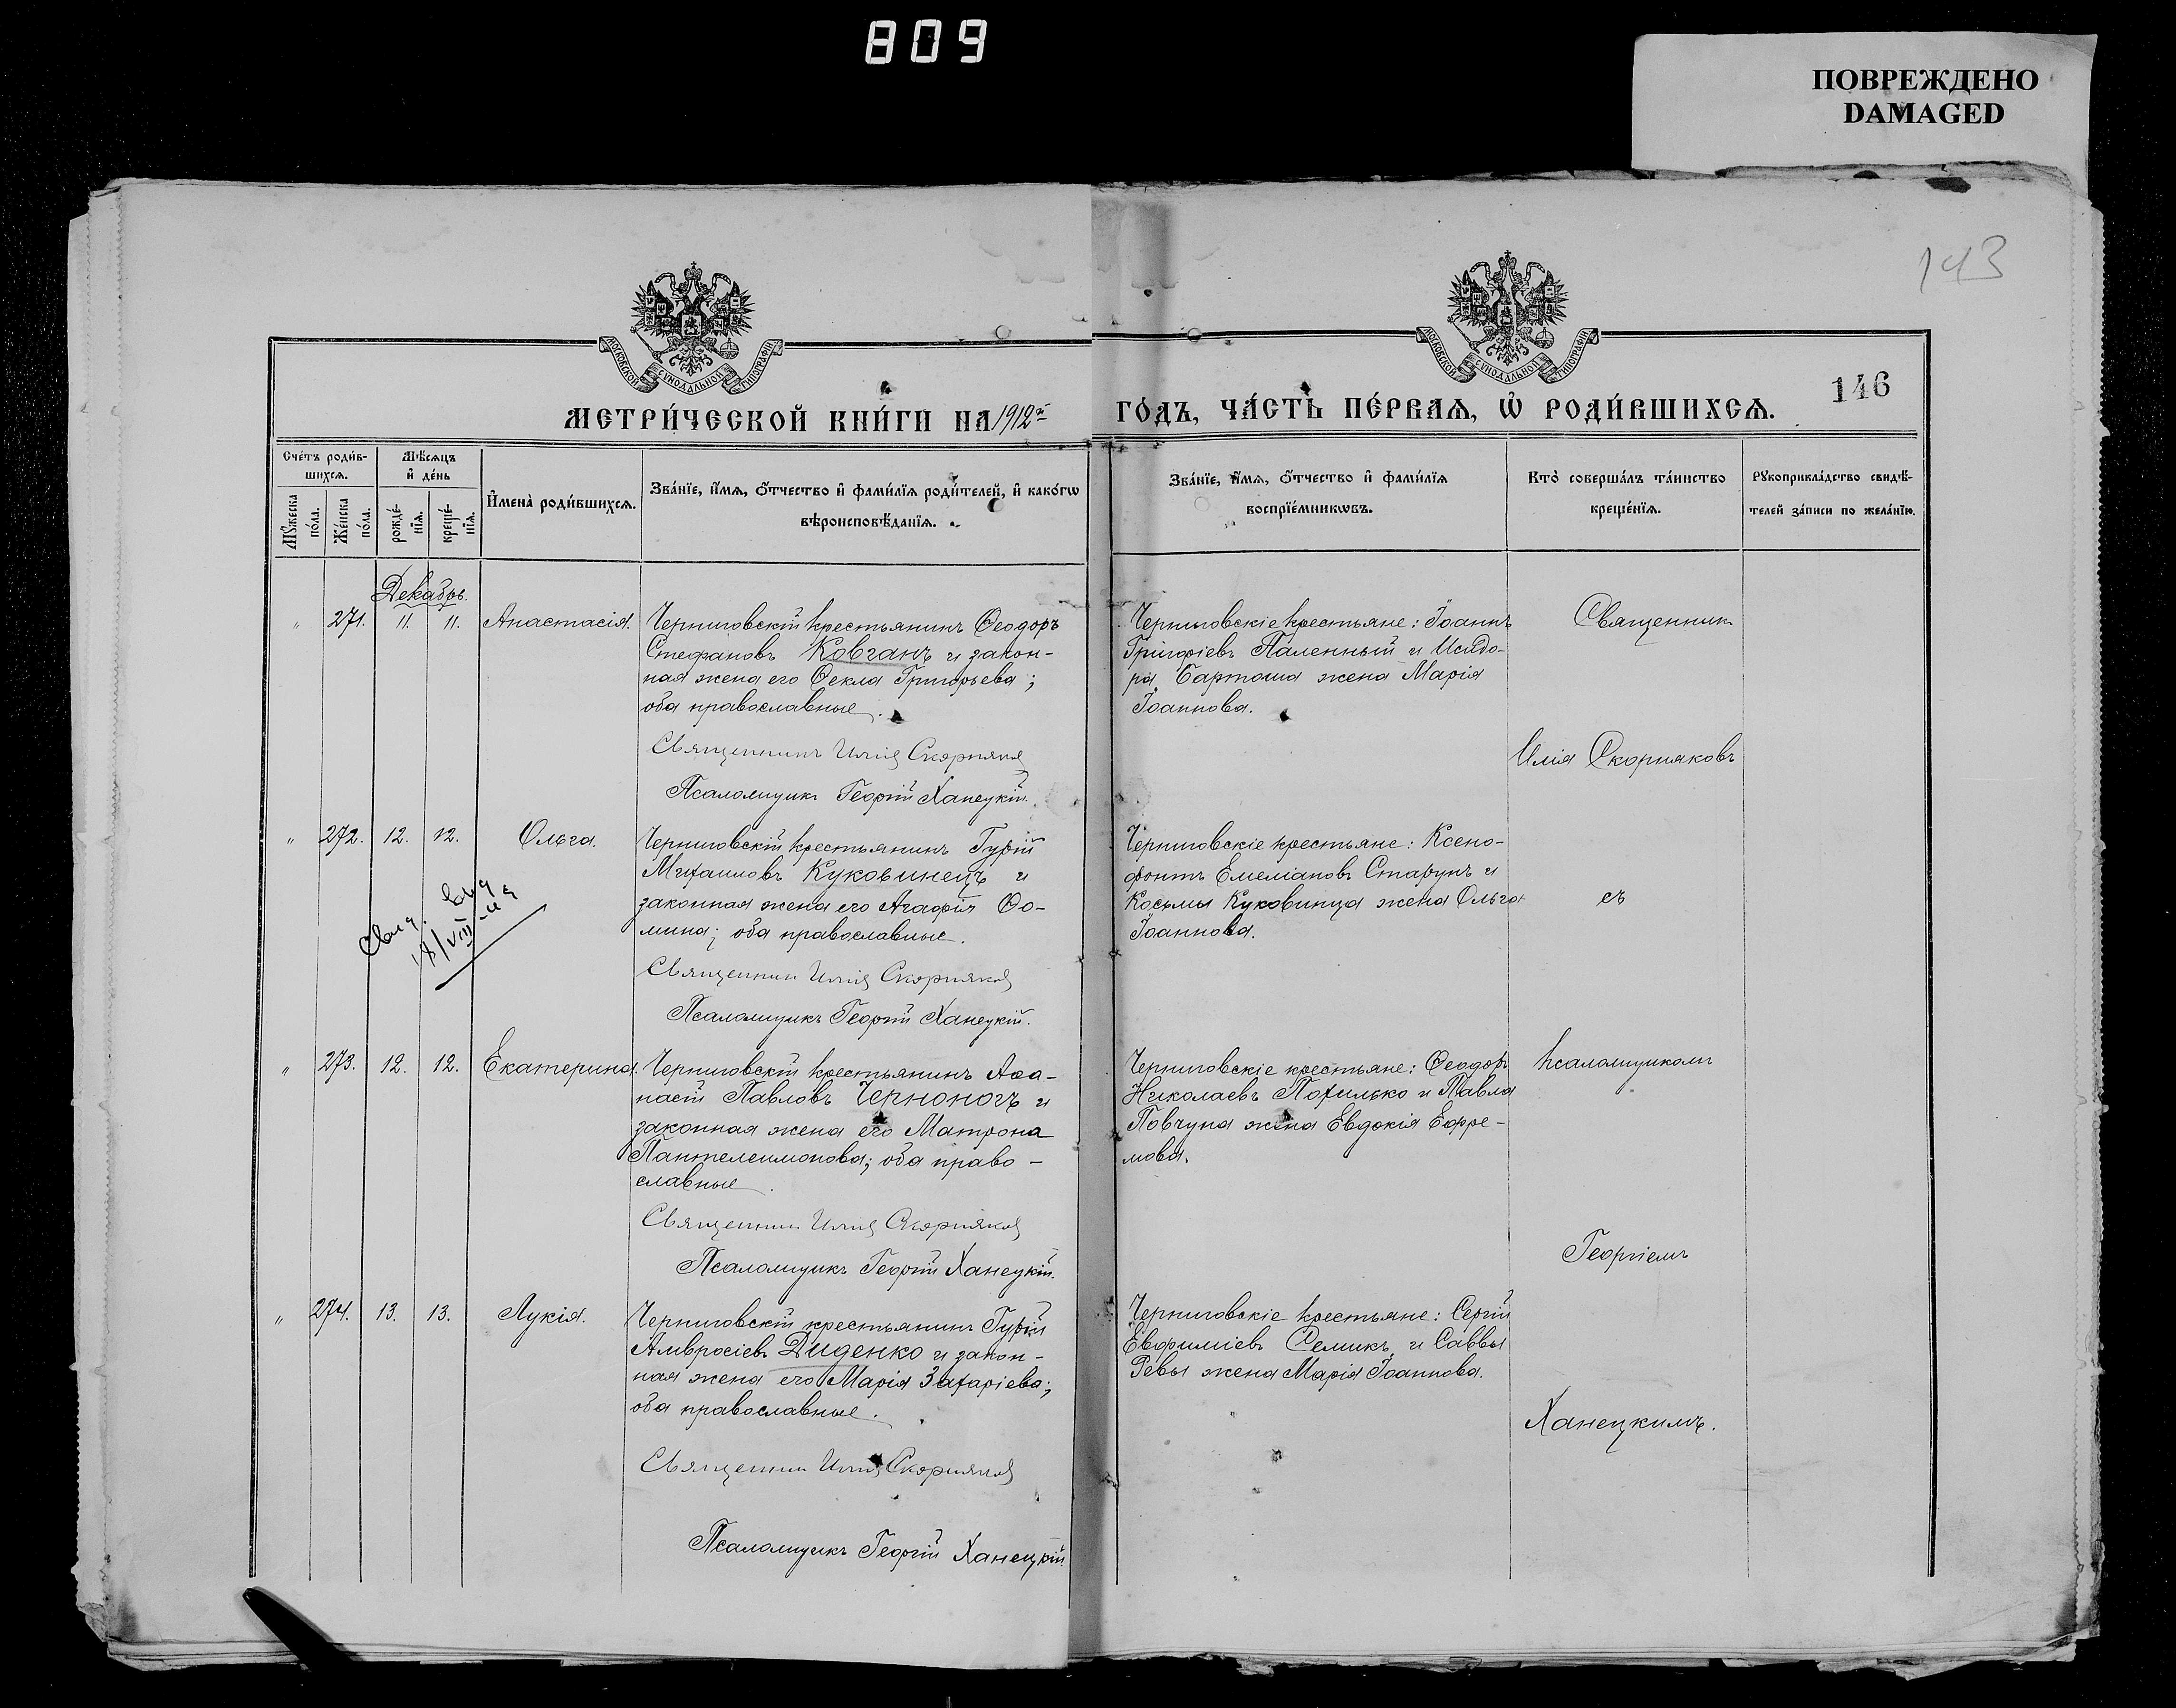 809
ПОВРЕЖДЕНО
DAMAGED
143
МОСКОВСКОЙ СѴНОДАЛЬНОЙ ТИПОГРАФІИ
МОСКОВСКОЙ СѴНОДАЛЬНОЙ ТИПОГРАФІИ
146
МЕТРИ́ЧЕСКОЙ КНИ́ГИ НА 1912й ГО́ДЪ, ЧА́СТЬ ПЕ́РВАѦ, Ѡ҆ РОДИ́ВШИХСѦ.
Сче́тъ роди́в-
шихсѧ.
Мꙋ́жеска
по́ла.
Же́нска
по́ла.
Мѣ́сѧцъ
и҆ де́нь
рожде́-
нїѧ.
креще́-
нїѧ.
И҆мена̀ роди́вшихсѧ.
Зва́нїе, и҆́мѧ, ѻ҆́тчество и҆ фами́лїѧ роди́телей, и҆ како́гѡ
вѣроисповѣ́данїѧ.
Зва́нїе, и҆́мѧ, ѻ҆́тчество и҆ фами́лїѧ
воспрїе́мникѡвъ.
Кто̀ соверша́лъ та́инство
креще́нїѧ.
Рꙋкоприкла́дство свидѣ́-
телей за́писи по жела́нїю.
Декабрь.
" 271. 11. 11. Анастасія.
Черниговскій крестьянинъ Ѳеодоръ
Стефановъ Ковганъ и закон-
ная жена его Ѳекла Григорьева;
оба православные.
Священникъ Илія Скорняковъ
Псаломщикъ Георгій Ханецкій.
Черниговскіе крестьяне: Іоаннъ
Григоріевъ Паленный и Исидо-
ра Бартоша жена Марія
Іоаннова.
Священник
Илія Скорняковъ
" 272. 12. 12. Ольга.
Черниговскій крестьянинъ Гурій
Михаиловъ Куковинецъ и
законная жена его Агафія Ѳо-
мина; оба православные.
Священник Илія Скорняковъ
Псаломщикъ Георгій Ханецкій.
Черниговскіе крестьяне: Ксено-
фонтъ Емеліановъ Старунъ и
Косьмы Куковинца жена Ольга
Іоаннова.
съ
18/VIII
" 273. 12. 12. Екатерина.
Черниговскій крестьянинъ Аѳа-
насій Павловъ Черноногъ и
законная жена его Матрона
Пантелеимонова; оба право-
славные.
Священник Илія Скорняковъ
Псаломщикъ Георгій Ханецкій.
Черниговскіе крестьяне: Ѳеодоръ
Николаевъ Похилько и Павла
Повчуна жена Евдокія Ефре-
мова.
псаломщиком
Георгіемъ
" 274. 13. 13. Лукія.
Черниговскій крестьянинъ Гурій
Амвросіевъ Диденко и закон-
ная жена его Марія Захаріева;
оба православные.
Священник Илія Скорняковъ
Псаломщикъ Георгій Ханецкій
Черниговскіе крестьяне: Сергій
Евфиміевъ Семикъ и Саввы
Ревы жена Марія Іоаннова.
Ханецкимъ.